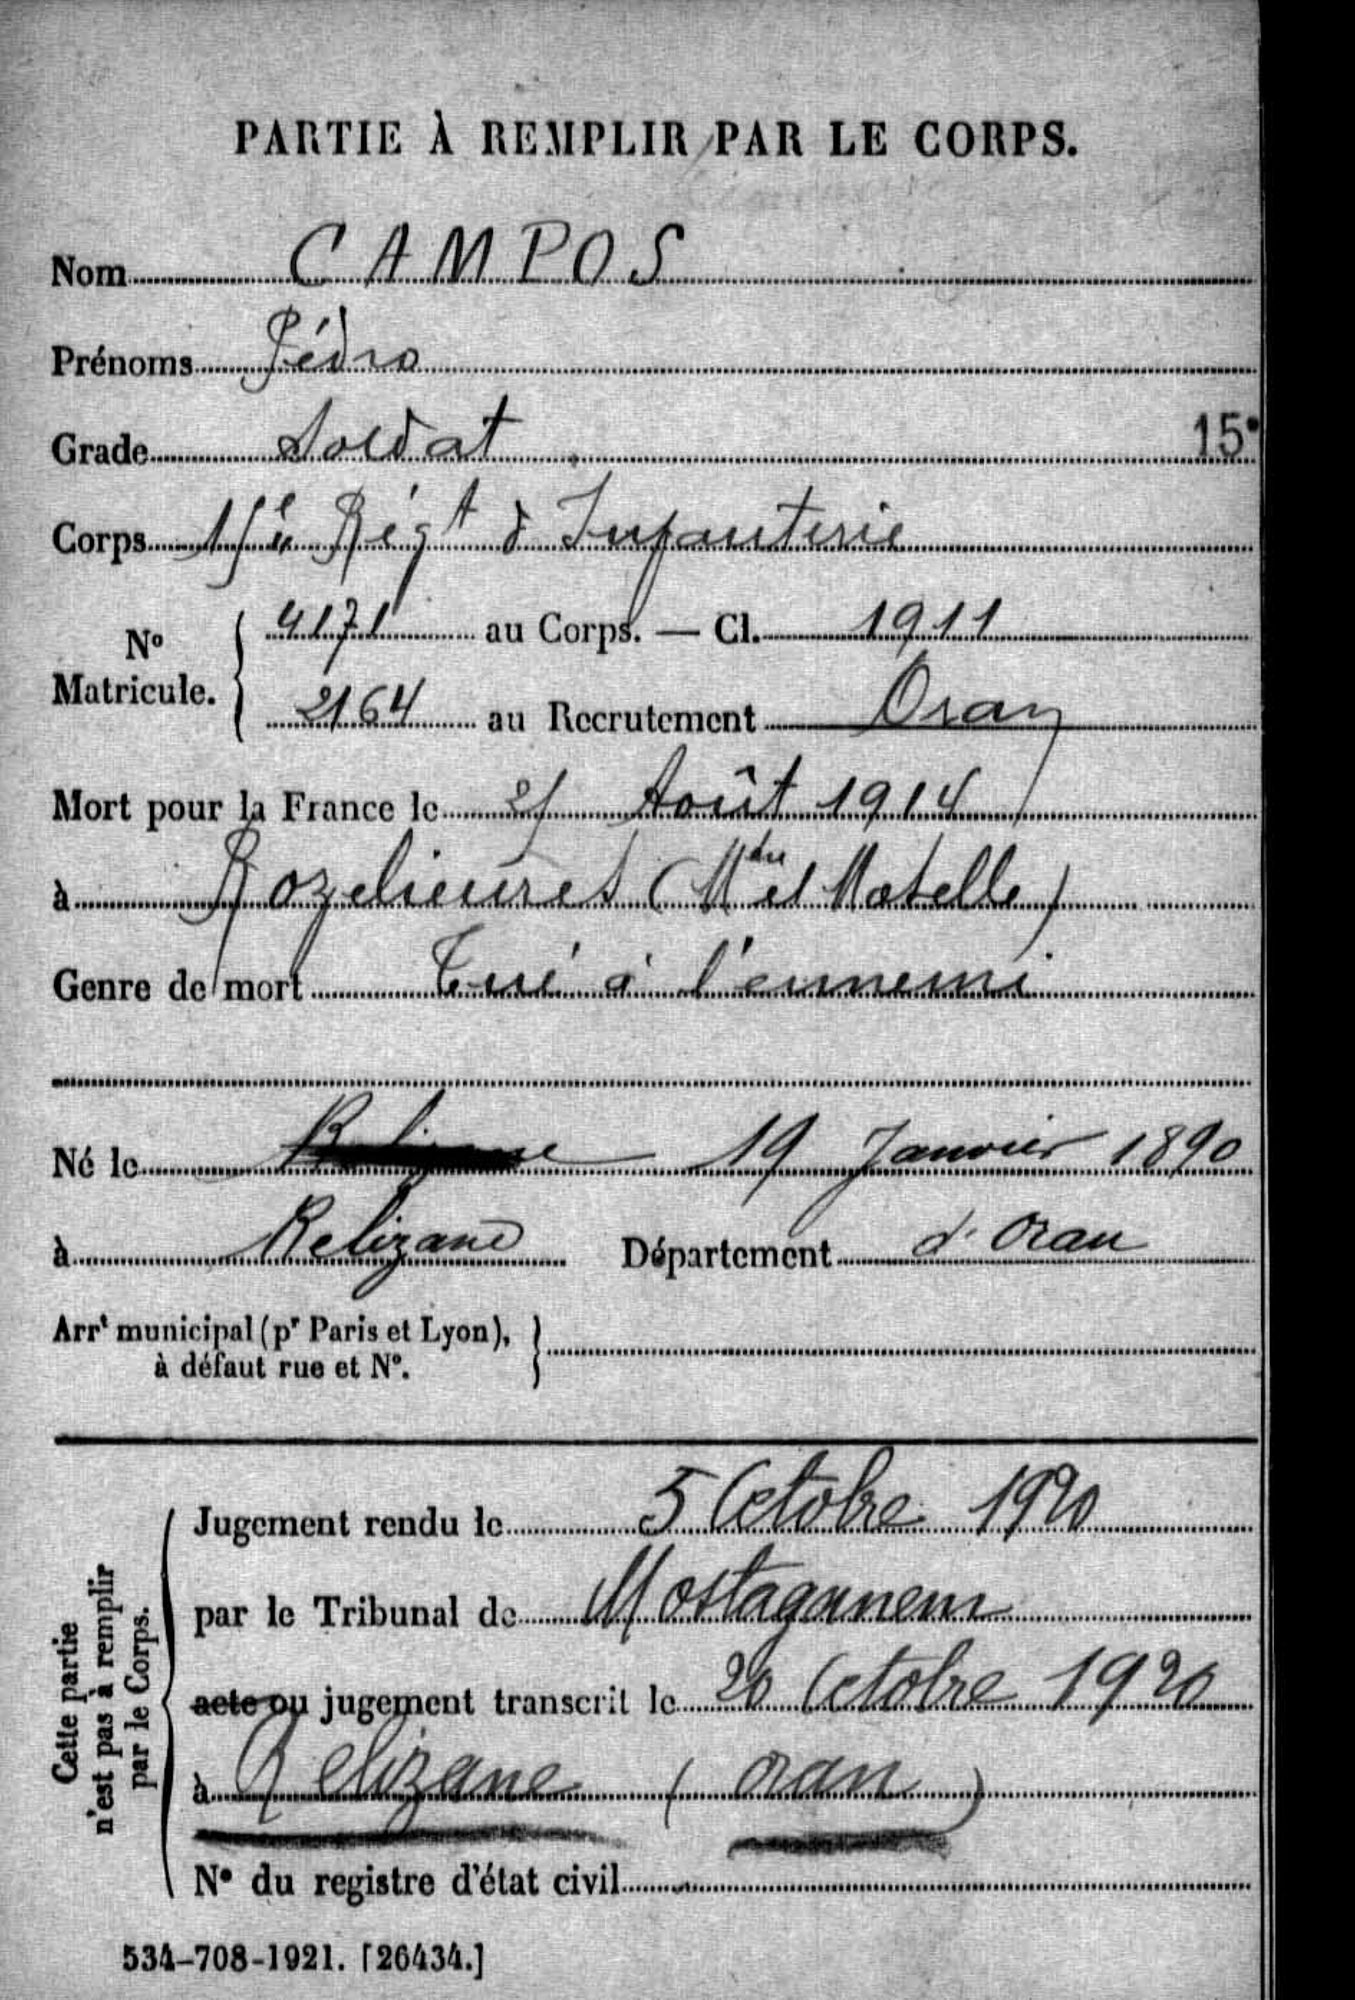 PARTIE À REMPLIR PAR LE CORPS.
Nom CAMPOS
Prénoms Pédro
Grade Soldat
15e
Corps 15e Régt d' Infanterie
No Matricule. 4171 au Corps. — Cl. 1911
2164 au Recrutement Oran
Mort pour la France le 25 Août 1914
à Rozelieures (Mthe et Moselle)
Genre de mort Tué à l'ennemi
Né le 19 Janvier 1890
à Relizane Département d'Oran
Arrt municipal (pr Paris et Lyon),
à défaut rue et No.
Cette partie
n'est pas à remplir
par le Corps.
Jugement rendu le 5 Octobre 1920
par le Tribunal de Mostaganem
acte ou jugement transcrit le 20 Octobre 1920
à Relizane (Oran)
No du registre d'état civil
534-708-1921. [26434.]